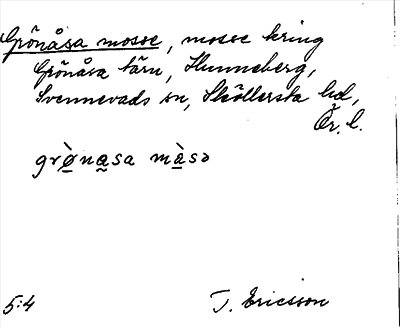 Grönåsa mosse, mosse kring
Grönåsa tärn, Hunneberg,
Svennevads sn, Sköllersta hd,
Ör. l.
grø̀na̰sa màsə
5:4
T. Ericsson